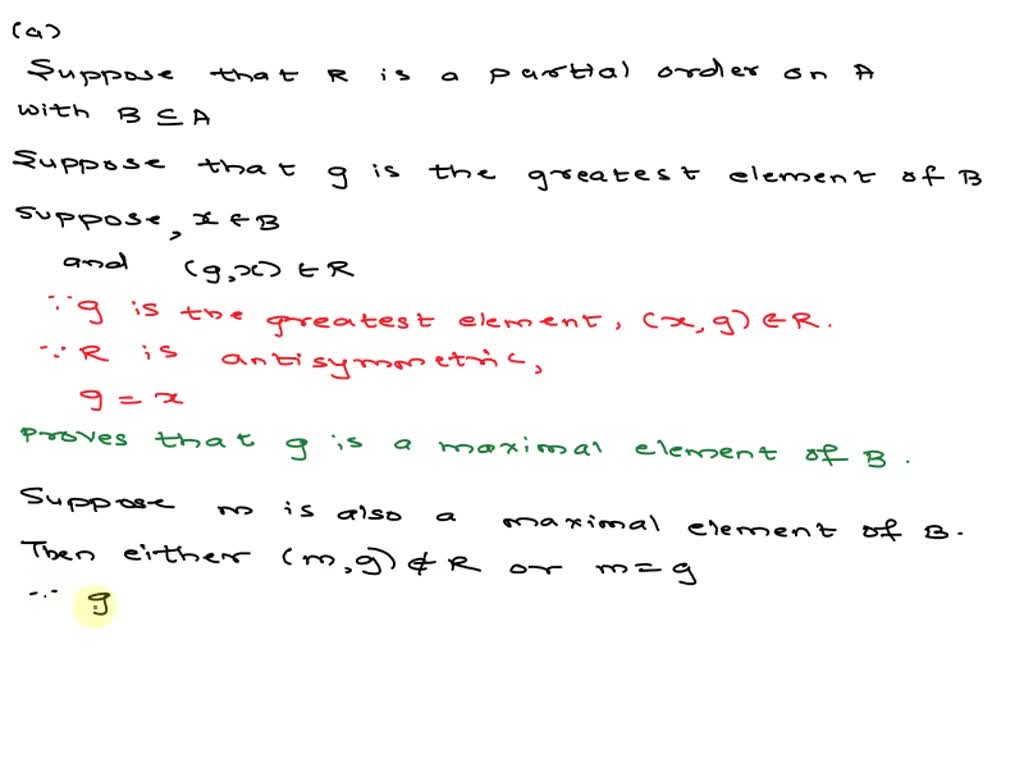 (a)
Suppose that R is a partial order on A
with B ⊆ A
Suppose that g is the greatest element of B
Suppose, x ∈ B
and (g,x) ∈ R
∵ g is the greatest element, (x,g) ∈ R.
∵ R is antisymmetric,
g = x
Proves that g is a maximal element of B.
Suppose m is also a maximal element of B.
Then either (m,g) ∉ R or m = g
∵ g